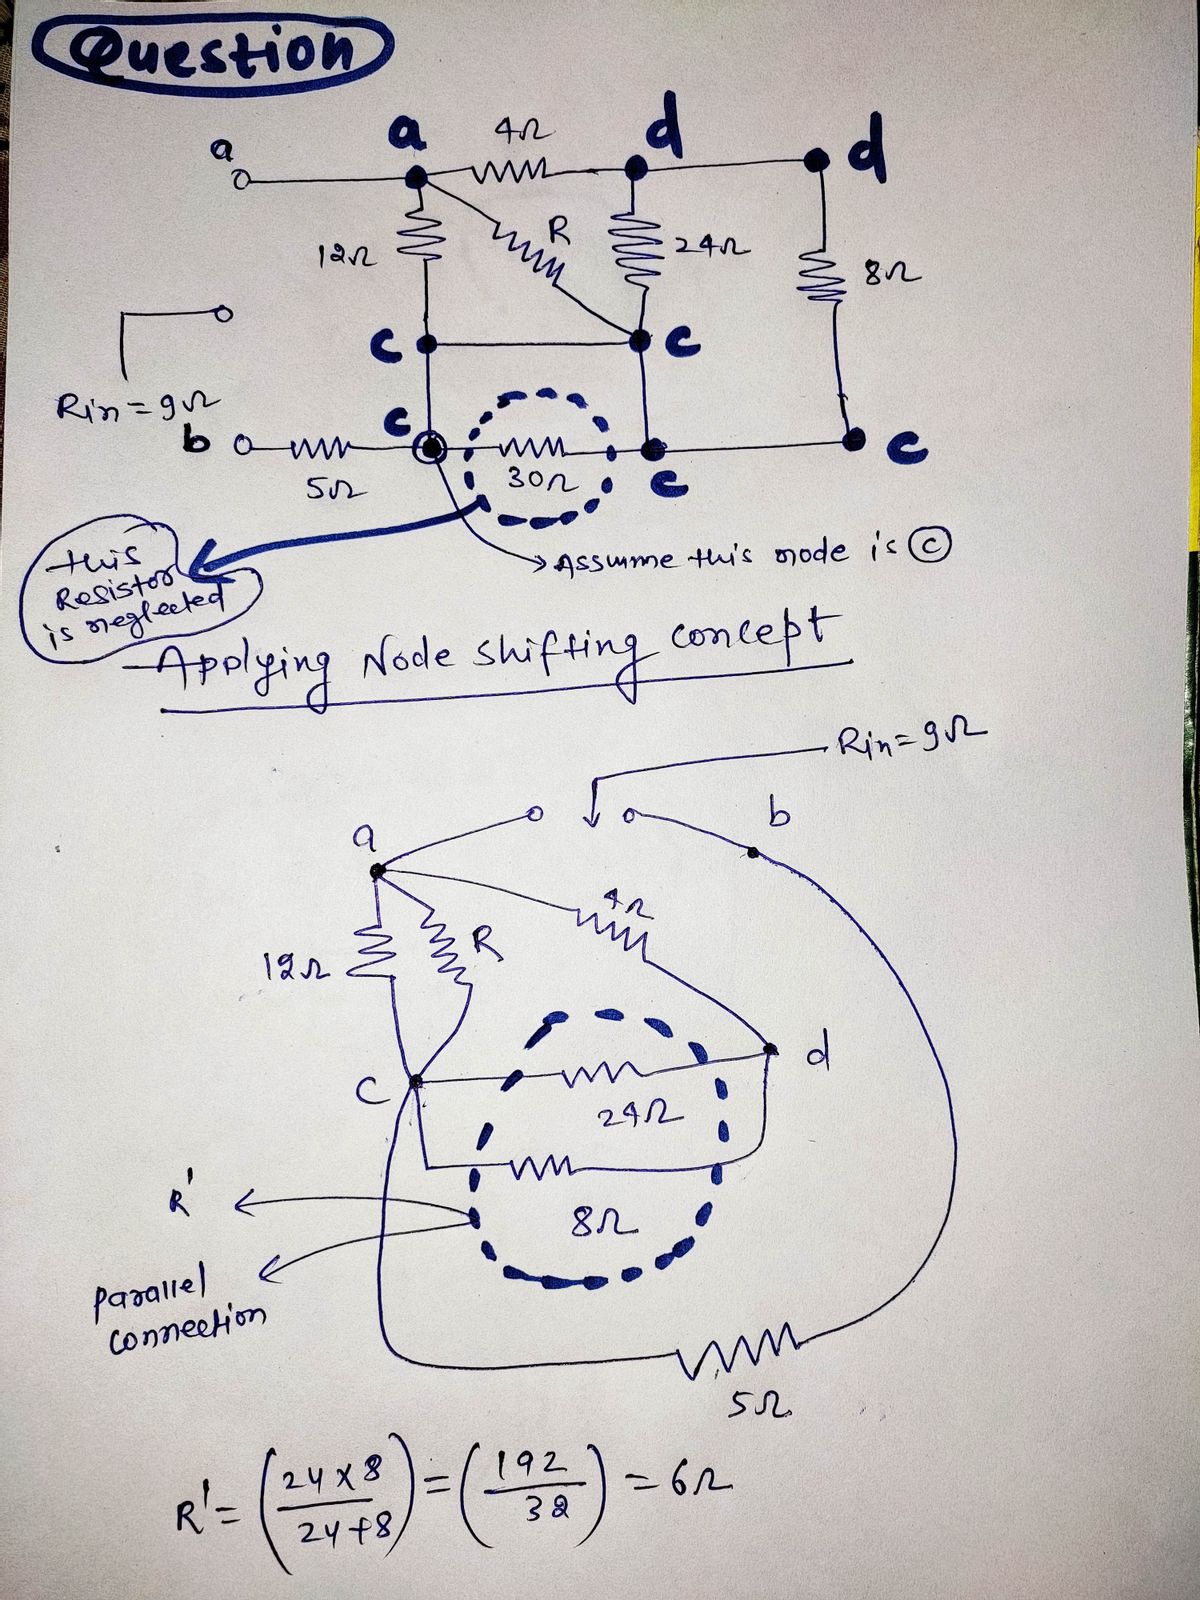 Question
a a 4Ω d d
12Ω R 24Ω 8Ω
c c
Rin = 9Ω
b c c c
5Ω 30Ω
this
Resistor
is neglected
Assume this node is ©
Applying Node shifting concept
Rin = 9Ω
a b
4Ω
12Ω R
c d
24Ω
R'
8Ω
parallel
connection
5Ω
R' = (24 × 8 / 24 + 8) = (192 / 32) = 6Ω